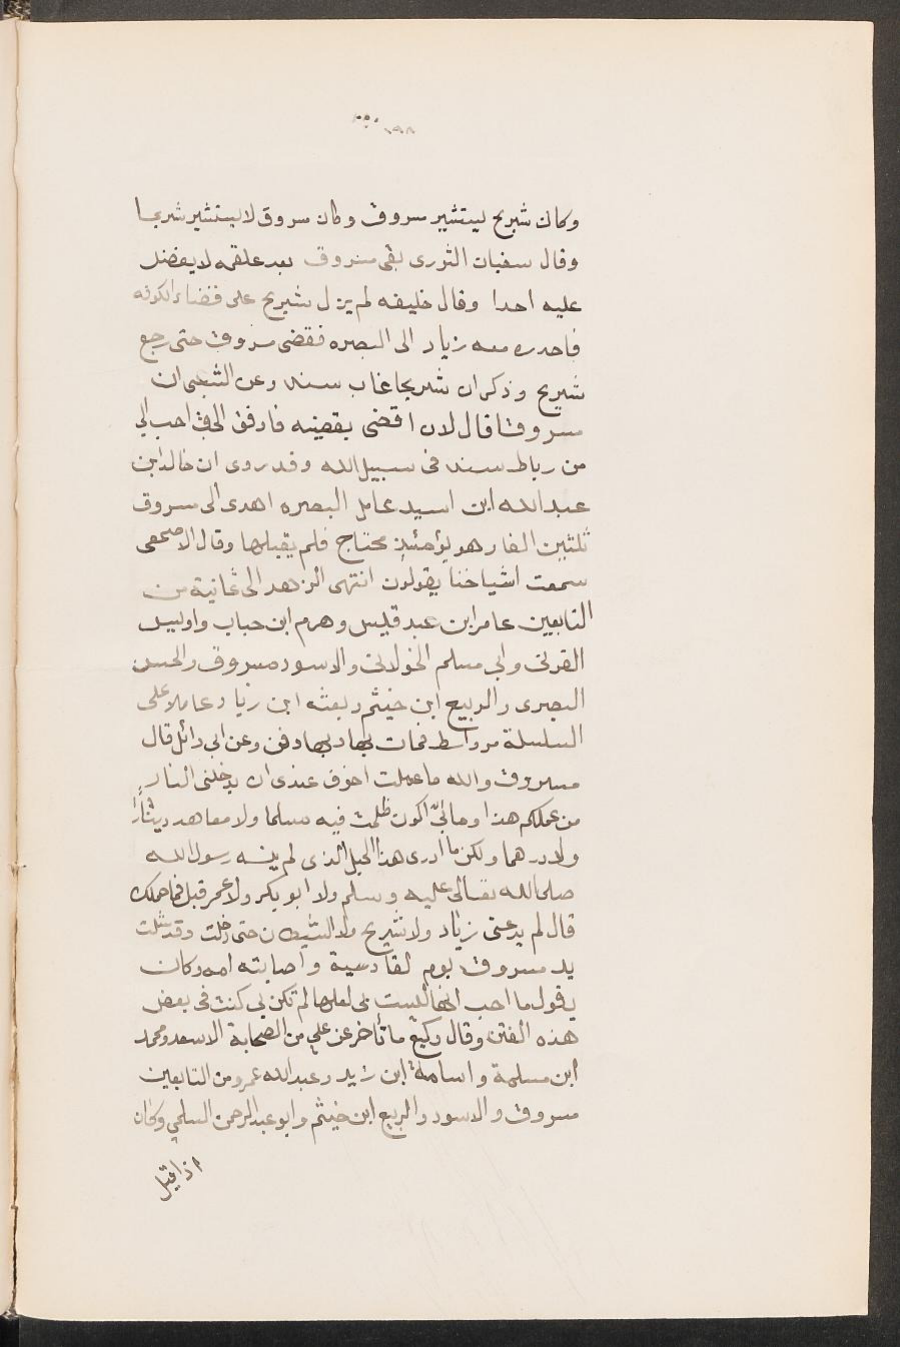 وكان شريح ليستشير مسروق وكان مسروق لا ليستشير شريحا
وقال سفيان الثورى بقى مسروق بعد علقمه لا يفضل
عليه احدا وقال خليفه لم يزل شريح على قضاء الكوفه
فاحدره معه زياد الى البصره فقضى مسروق حتى رجع
شريح وذكر ان شريحا غاب سنه وعن الشعبى ان
مسروقا قال لان اقضى بقضيه فاوفق الحق احب الي
من رباط سنه فى سبيل الله وقد روى ان خالد ابن
عبد الله ابن اسيد عامل البصره اهدى الى مسروق
ثلثين الفا وهو يومئذ محتاج فلم يقبلها وقال الاصمعى
سمعت اشياخنا يقولون انتهى الزهد الى ثمانية من
التابعين عامر ابن عبد قيس وهرم ابن حباب واويس
القرنى وابي مسلم الخولانى والاسود مسروق والحسن
البصرى والربيع ابن خيثم وبعثه ابن زياد عاملا على
السلسلة من واسط فمات بها وبها دفن وعن ابى وائل قال
مسروق والله ما عملت اخوف عندى ان يدخلنى النار
من عملكم هذا وما بي ان اكون ظلمت فيه مسلما ولا معاهد دينارا
ولا درهما ولكن ما ادرى هذا الحبل الذى لم يسنه رسول الله
صلى الله تعالى عليه وسلم ولا ابو بكر ولا عمر قيل فما حملك
قال لم يدعنى زياد ولا شريح ولا الشيطان حتى دخلت وقد شلت
يد مسروق يوم لقادسية واصابته امه وكان
يقول ما احب انها ليست لى لعلها لم تكن بي كنت فى بعض
هذه الفتن وقال وكيع ما تأخر عن علي من الصحابة الا سعد ومحمد
ابن مسلمة واسامة ابن زيد وعبد الله عمرو من التابعين
مسروق والاسود والربيع ابن خيثم وابو عبد الرحمن السلمي وكان
اذا قيل